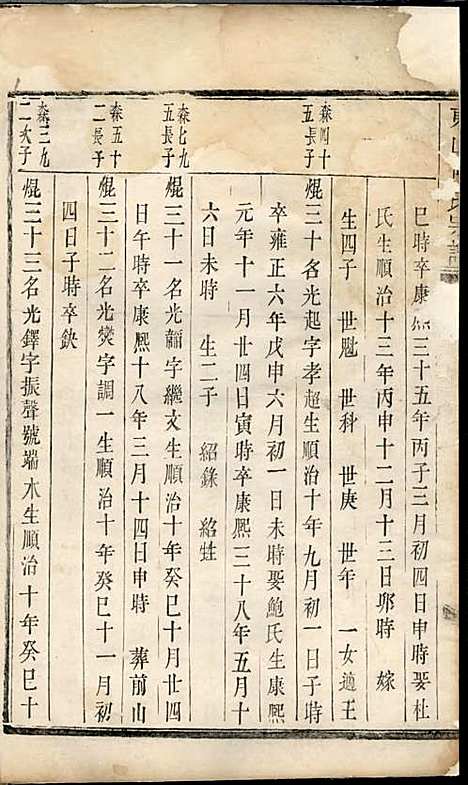 巳時卒康熙三十五年丙子三月初四日申時娶杜
氏生順治十三年丙申十二月十三日夘時 嫁
生四子 世魁 世科 世庚 世年 一女適王
森四十
五長子
焜三十名光起字孝超生順治十年九月初一日子時
卒雍正六年戊申六月初一日未時娶鮑氏生康熙
元年十一月廿四日寅時卒康熙三十八年五月十
六日未時 生二子 紹錄 紹甡
森七九
五長子
焜三十一名光黼字繼文生順治十年癸巳十月廿四
日午時卒康熙十八年三月十四日申時 葬前山
森五十
二長子
焜三十二名光爕字調一生順治十年癸巳十一月初
四日子時卒缺
森三九
二次子
焜三十三名光鐸字振聲號端木生順治十年癸巳十